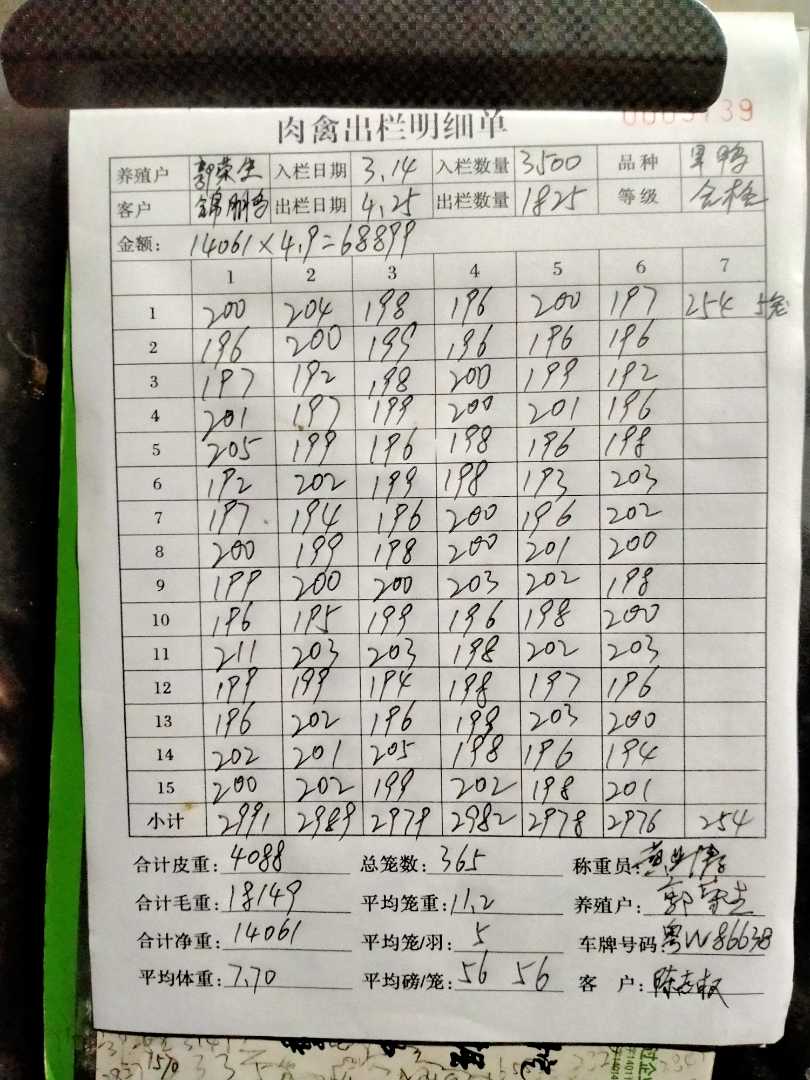 肉禽出栏明细单
养殖户 郭荣生 入栏日期 3.14 入栏数量 3500 品种
客户 出栏日期 4.25 出栏数量 1825 等级 合格
金额: 14061×4.9=68899
1 2 3 4 5 6 7
1 200 204 198 196 200 197 254 5笼
2 196 200 199 196 196 196
3 197 192 198 200 199 192
4 201 197 199 200 201 196
5 205 199 196 198 196 198
6 192 202 199 198 193 203
7 197 194 196 200 196 202
8 200 199 198 200 201 200
9 199 200 200 203 202 198
10 196 195 199 196 198 200
11 211 203 203 198 202 203
12 199 199 194 198 197 196
13 196 202 196 199 203 200
14 202 201 205 198 196 194
15 200 202 199 202 198 201
小计 2991 2989 2979 2982 2978 2976 254
合计皮重: 4088 总笼数: 365 称重员:
合计毛重: 18149 平均笼重: 11.2 养殖户: 郭荣生
合计净重: 14061 平均笼/羽: 5 车牌号码 粤W86638
平均体重: 7.70 平均磅/笼: 56 56 客 户: